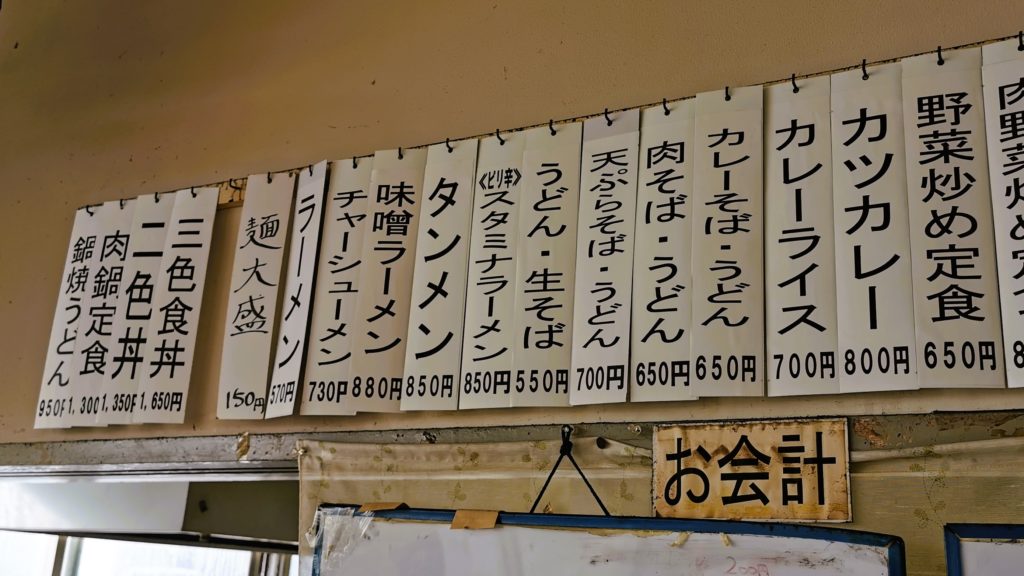 鍋焼うどん
950円
肉鍋定食
1,300
二色丼
1,350円
三色食丼
1,650円
麺大盛
150円
ラーメン
570円
チャーシューメン
730円
味噌ラーメン
880円
タンメン
850円
《ピリ辛》スタミナラーメン
850円
うどん・生そば
550円
天ぷらそば・うどん
700円
肉そば・うどん
650円
カレーそば・うどん
650円
カレーライス
700円
カツカレー
800円
野菜炒め定食
650円
肉野菜炒め定
8
お会計
200円